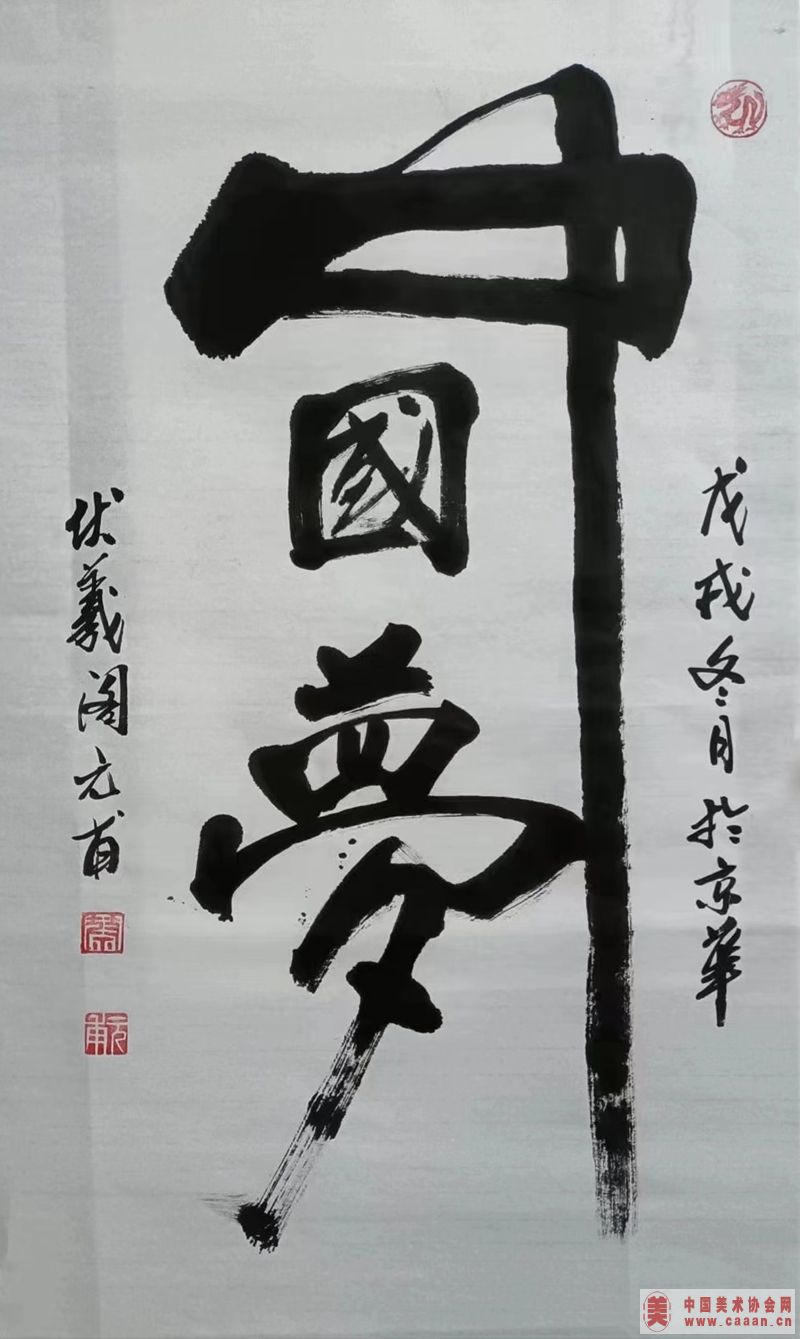 中國夢
戊戌冬月於京華
伏羲阁元甫
元甫
中国美术协会网
www.caaan.cn